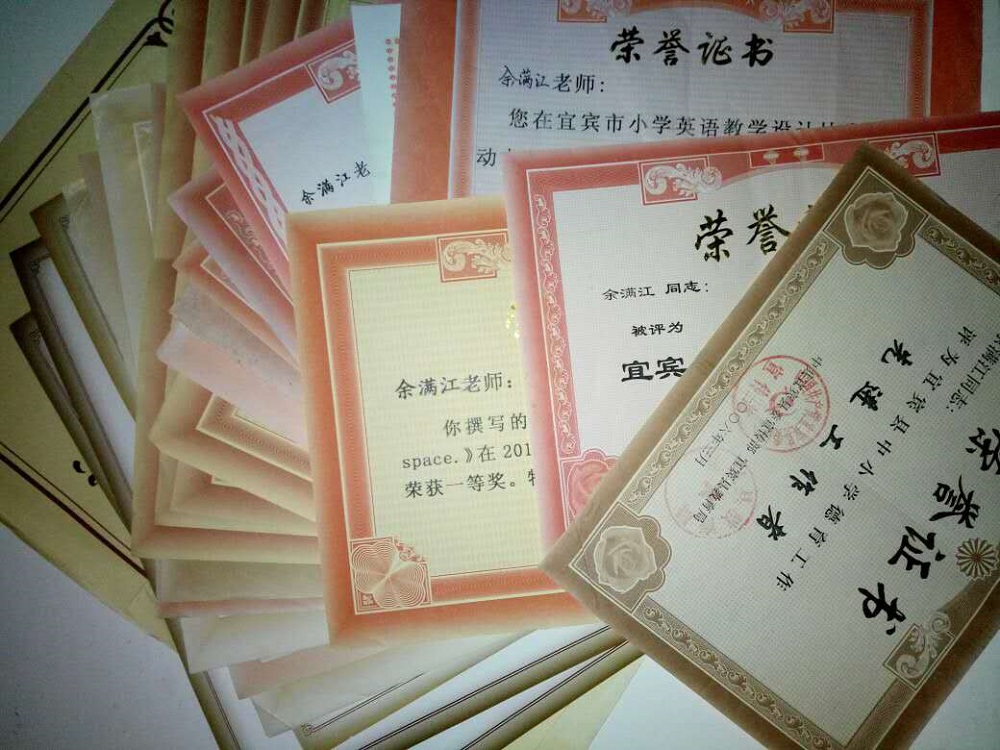 荣誉证书
余满江老师:
您在宜宾市小学英语教学设计
动
余满江老
荣誉
余满江 同志:
被评为
宜宾
余满江老师:
你撰写的
space.》在 201
荣获一等奖。特
荣誉证书
余满江同志:
评为宜宾县中小学德育工作
先进工作者
中共宜宾县委宣传部 宜宾县教育局
二〇〇八年三月